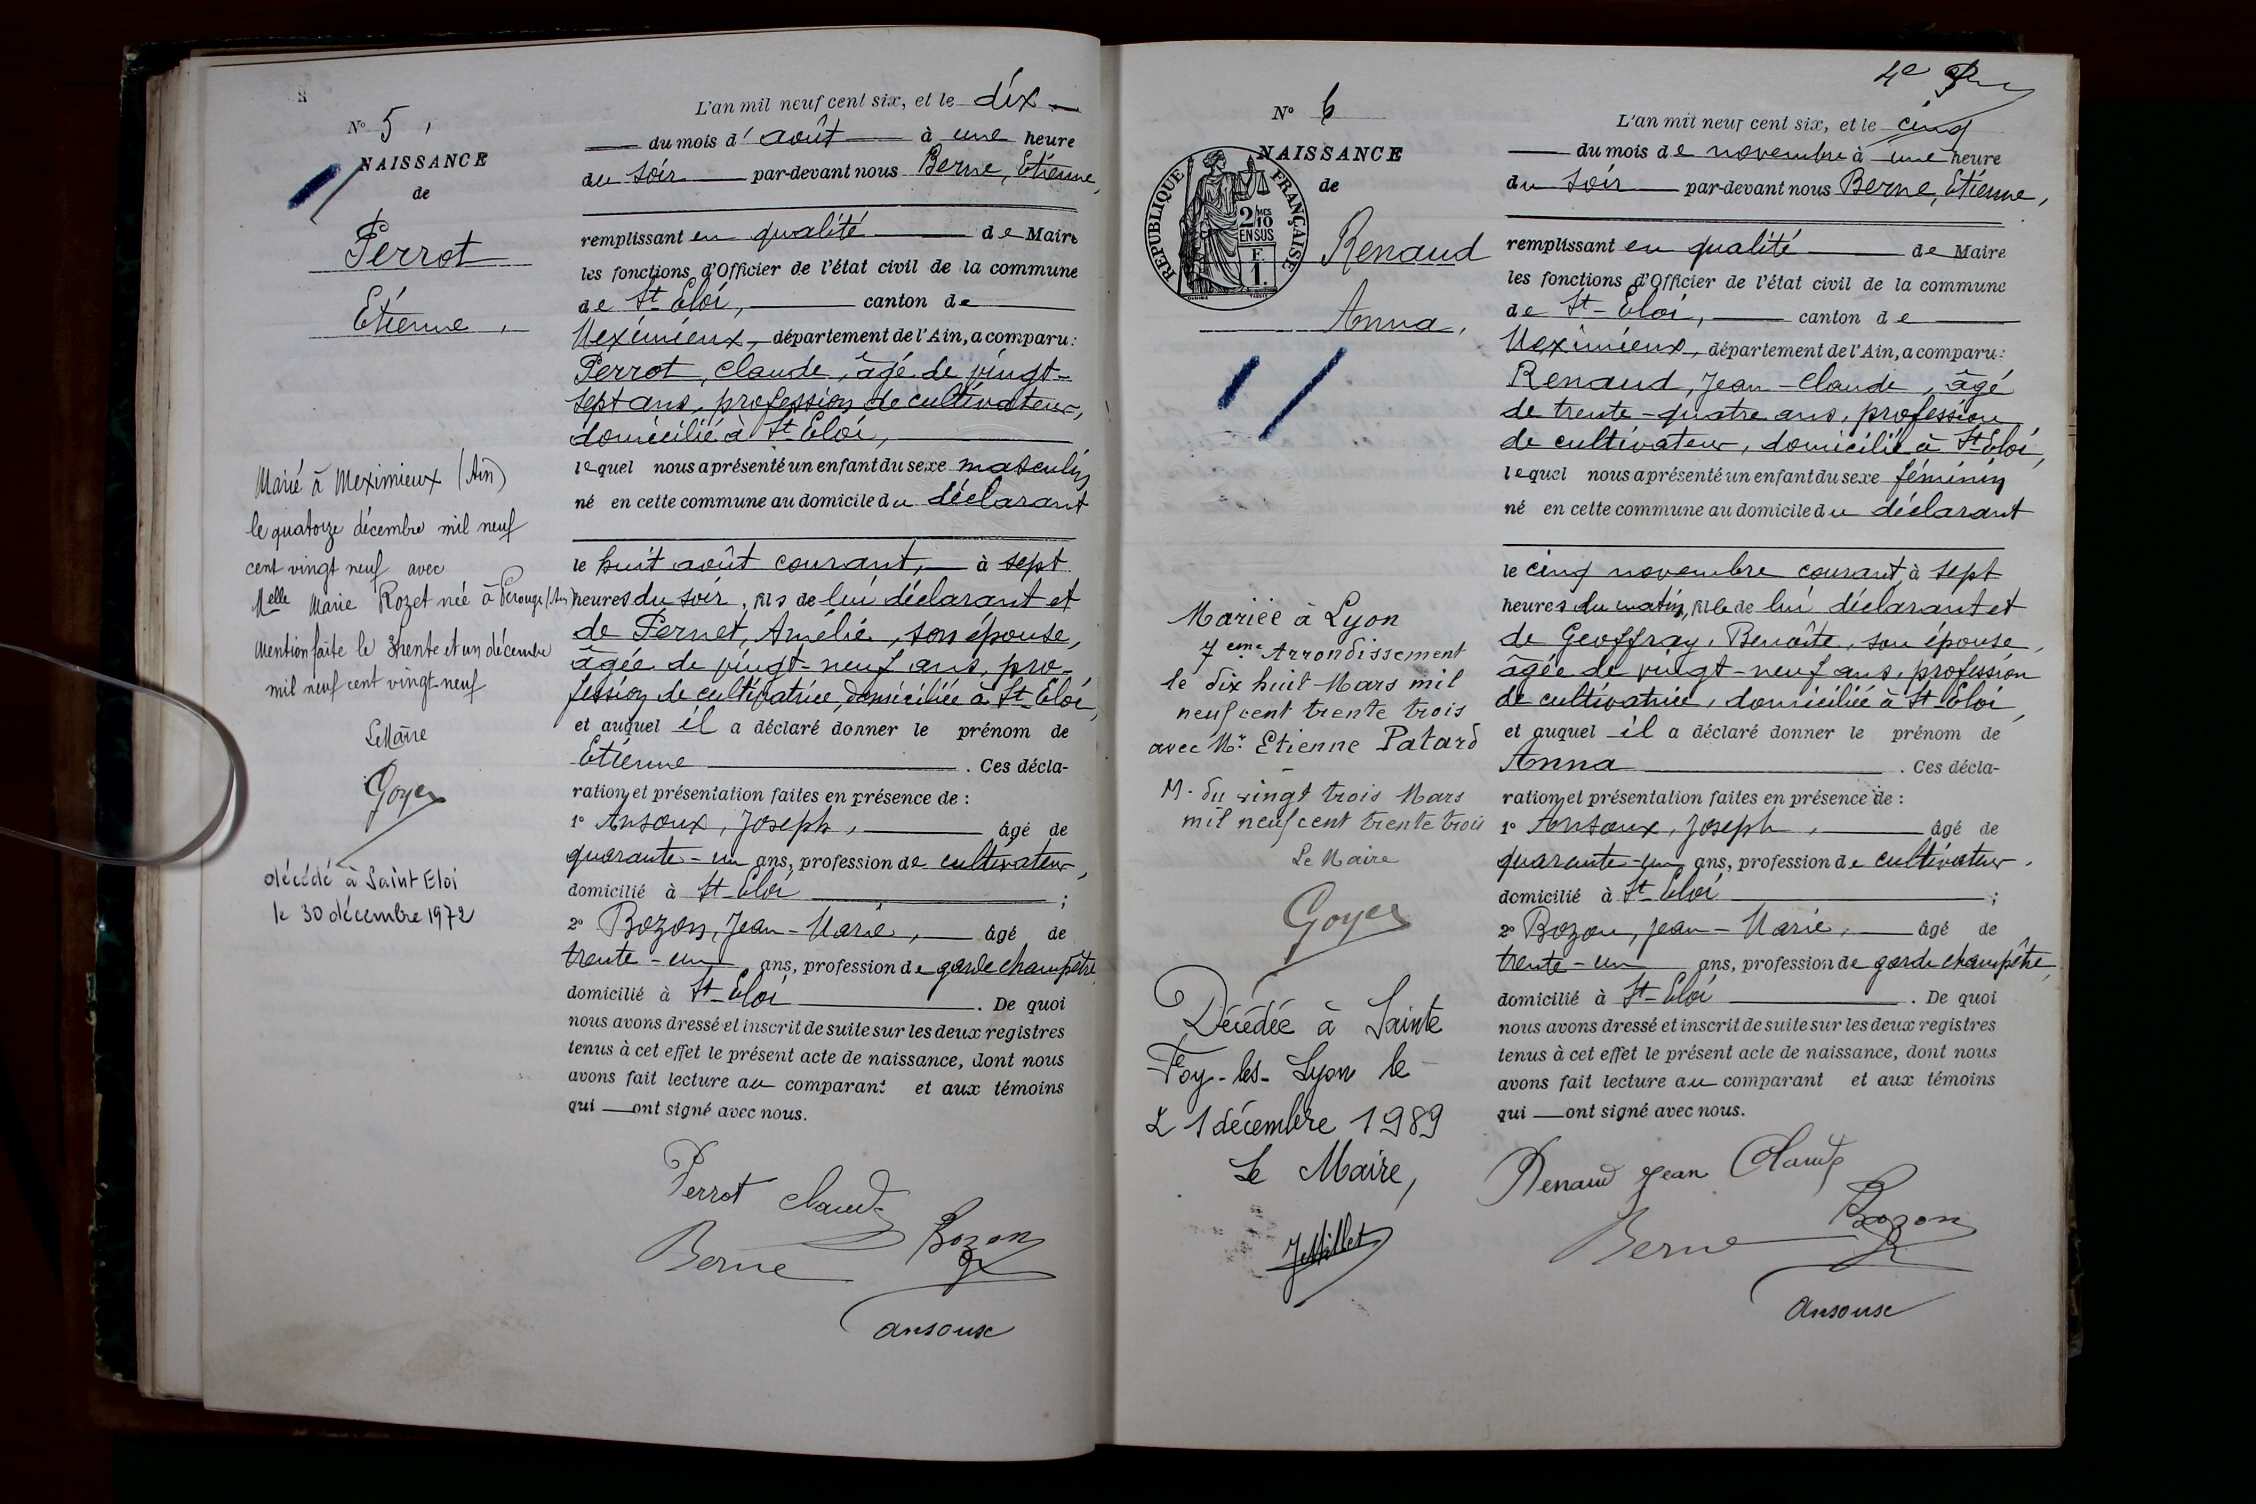 N° 5
NAISSANCE
de
Perrot
Etienne,
Marié à Meximieux (Ain)
le quatorze décembre mil neuf
cent vingt neuf avec
Melle Marie Rozet née à Pérouges (Ain)
Mention faite le trente et un décembre
mil neuf cent vingt-neuf
Le Maire
Goyer
décédé à Saint Eloi
le 30 décembre 1972
L'an mil neuf cent six, et le dix
du mois d' août à une heure
du soir par-devant nous Berne, Etienne,
remplissant en qualité de Maire
les fonctions d'Officier de l'état civil de la commune
de St-Eloi, canton de
Meximieux, département de l'Ain, a comparu:
Perrot, Claude, âgé de vingt-
sept ans, profession de cultivateur,
domicilié à St-Eloi,
lequel nous a présenté un enfant du sexe masculin
né en cette commune au domicile du déclarant
le huit août courant, à sept
heures du soir, fils de lui déclarant et
de Pernet, Amélie, son épouse,
âgée de vingt-neuf ans, pro-
fession de cultivatrice, domiciliée à St-Eloi,
et auquel il a déclaré donner le prénom de
Etienne . Ces décla-
ration et présentation faites en présence de :
1° Ansoux, Joseph, âgé de
quarante-un ans, profession de cultivateur,
domicilié à St-Eloi ;
2° Bozon, Jean-Marie, âgé de
trente-un ans, profession de garde champêtre,
domicilié à St-Eloi . De quoi
nous avons dressé et inscrit de suite sur les deux registres
tenus à cet effet le présent acte de naissance, dont nous
avons fait lecture au comparant et aux témoins
qui ont signé avec nous.
Perrot Claude
Berne Bozon
Ansoux
4e
N° 6
NAISSANCE
de
REPUBLIQUE FRANÇAISE
2/10
EN SUS
F.
1.
Renaud
Anna,
Mariée à Lyon
7eme Arrondissement
le dix huit Mars mil
neuf cent trente trois
avec Mr. Etienne Patard
M. du vingt trois Mars
mil neuf cent trente trois
Le Maire
Goyer
Décédée à Sainte
Foy-les-Lyon le
21 décembre 1989
Le Maire,
L'an mil neuf cent six, et le cinq
du mois de novembre à une heure
du soir par-devant nous Berne, Etienne,
remplissant en qualité de Maire
les fonctions d'Officier de l'état civil de la commune
de St-Eloi, canton de
Meximieux, département de l'Ain, a comparu:
Renaud, Jean-Claude, âgé
de trente-quatre ans, profession
de cultivateur, domicilié à St-Eloi,
lequel nous a présenté un enfant du sexe féminin
né en cette commune au domicile du déclarant
le cinq novembre courant, à sept
heures du matin, fille de lui déclarant et
de Geoffray, Benoîte, son épouse,
âgée de vingt-neuf ans, profession
de cultivatrice, domiciliée à St-Eloi,
et auquel il a déclaré donner le prénom de
Anna . Ces décla-
ration et présentation faites en présence de :
1° Ansoux, Joseph, âgé de
quarante-un ans, profession de cultivateur,
domicilié à St-Eloi ;
2° Bozon, Jean-Marie, âgé de
trente-un ans, profession de garde champêtre,
domicilié à St-Eloi . De quoi
nous avons dressé et inscrit de suite sur les deux registres
tenus à cet effet le présent acte de naissance, dont nous
avons fait lecture au comparant et aux témoins
qui ont signé avec nous.
Renaud Jean Claude
Berne Bozon
Ansoux